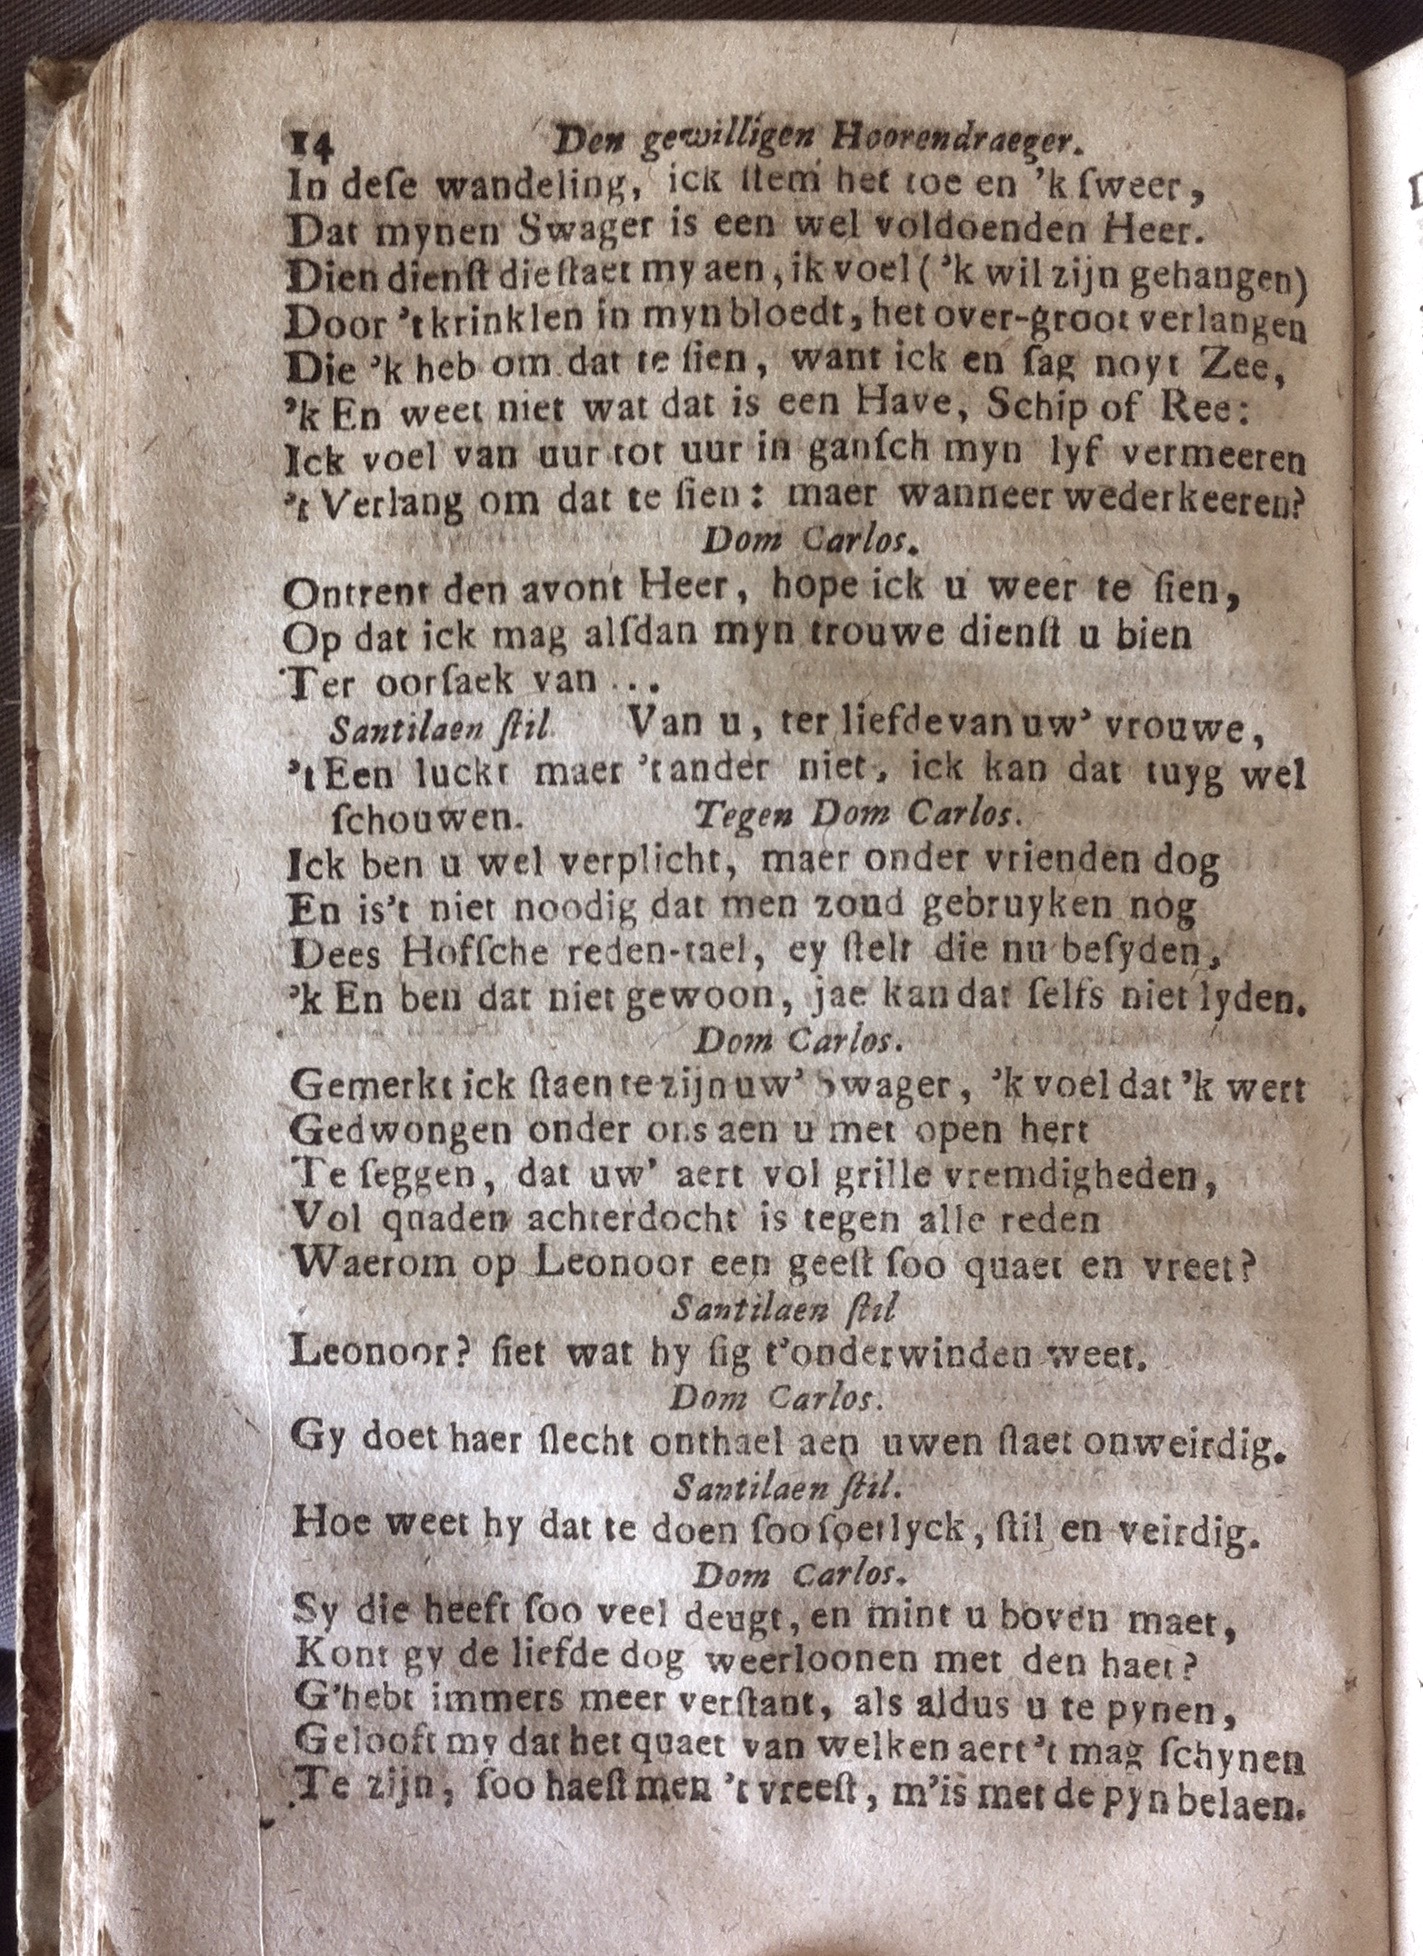 14 Den gewilligen Hoorendraeger.
In deſe wandeling, ick ſtem het toe en 'k ſweer,
Dat mynen Swager is een wel voldoenden Heer.
Dien dienſt die ſtaet my aen, ik voel ('k wil zijn gehangen)
Door 't krinklen in myn bloedt, het over-groot verlangen
Die 'k heb om dat te ſien, want ick en ſag noyt Zee,
'k En weet niet wat dat is een Have, Schip of Ree:
Ick voel van uur tot uur in ganſch myn lyf vermeeren
't Verlang om dat te ſien: maer wanneer wederkeeren?
Dom Carlos.
Ontrent den avont Heer, hope ick u weer te ſien,
Op dat ick mag alſdan myn trouwe dienſt u bien
Ter oorſaek van ...
Santilaen ſtil Van u, ter liefde van uw' vrouwe,
't Een luckt maer 't ander niet, ick kan dat tuyg wel
ſchouwen. Tegen Dom Carlos.
Ick ben u wel verplicht, maer onder vrienden dog
En is't niet noodig dat men zoud gebruyken nog
Dees Hofſche reden-tael, ey ſtelt die nu beſyden,
'k En ben dat niet gewoon, jae kan dat ſelfs niet lyden.
Dom Carlos.
Gemerkt ick ſtaen te zijn uw' Swager, 'k voel dat 'k wert
Gedwongen onder ons aen u met open hert
Te ſeggen, dat uw' aert vol grille vremdigheden,
Vol quaden achterdocht is tegen alle reden
Waerom op Leonoor een geeſt ſoo quaet en vreet?
Santilaen ſtil
Leonoor? ſiet wat hy ſig t'onderwinden weet.
Dom Carlos.
Gy doet haer ſlecht onthael aen uwen ſtaet onweirdig.
Santilaen ſtil.
Hoe weet hy dat te doen ſoo ſoetlyck, ſtil en veirdig.
Dom Carlos.
Sy die heeft ſoo veel deugt, en mint u boven maet,
Kont gy de liefde dog weerloonen met den haet?
G'hebt immers meer verſtant, als aldus u te pynen,
Gelooft my dat het quaet van welken aert 't mag ſchynen
Te zijn, ſoo haeſt men 't vreeſt, m'is met de pyn belaen.